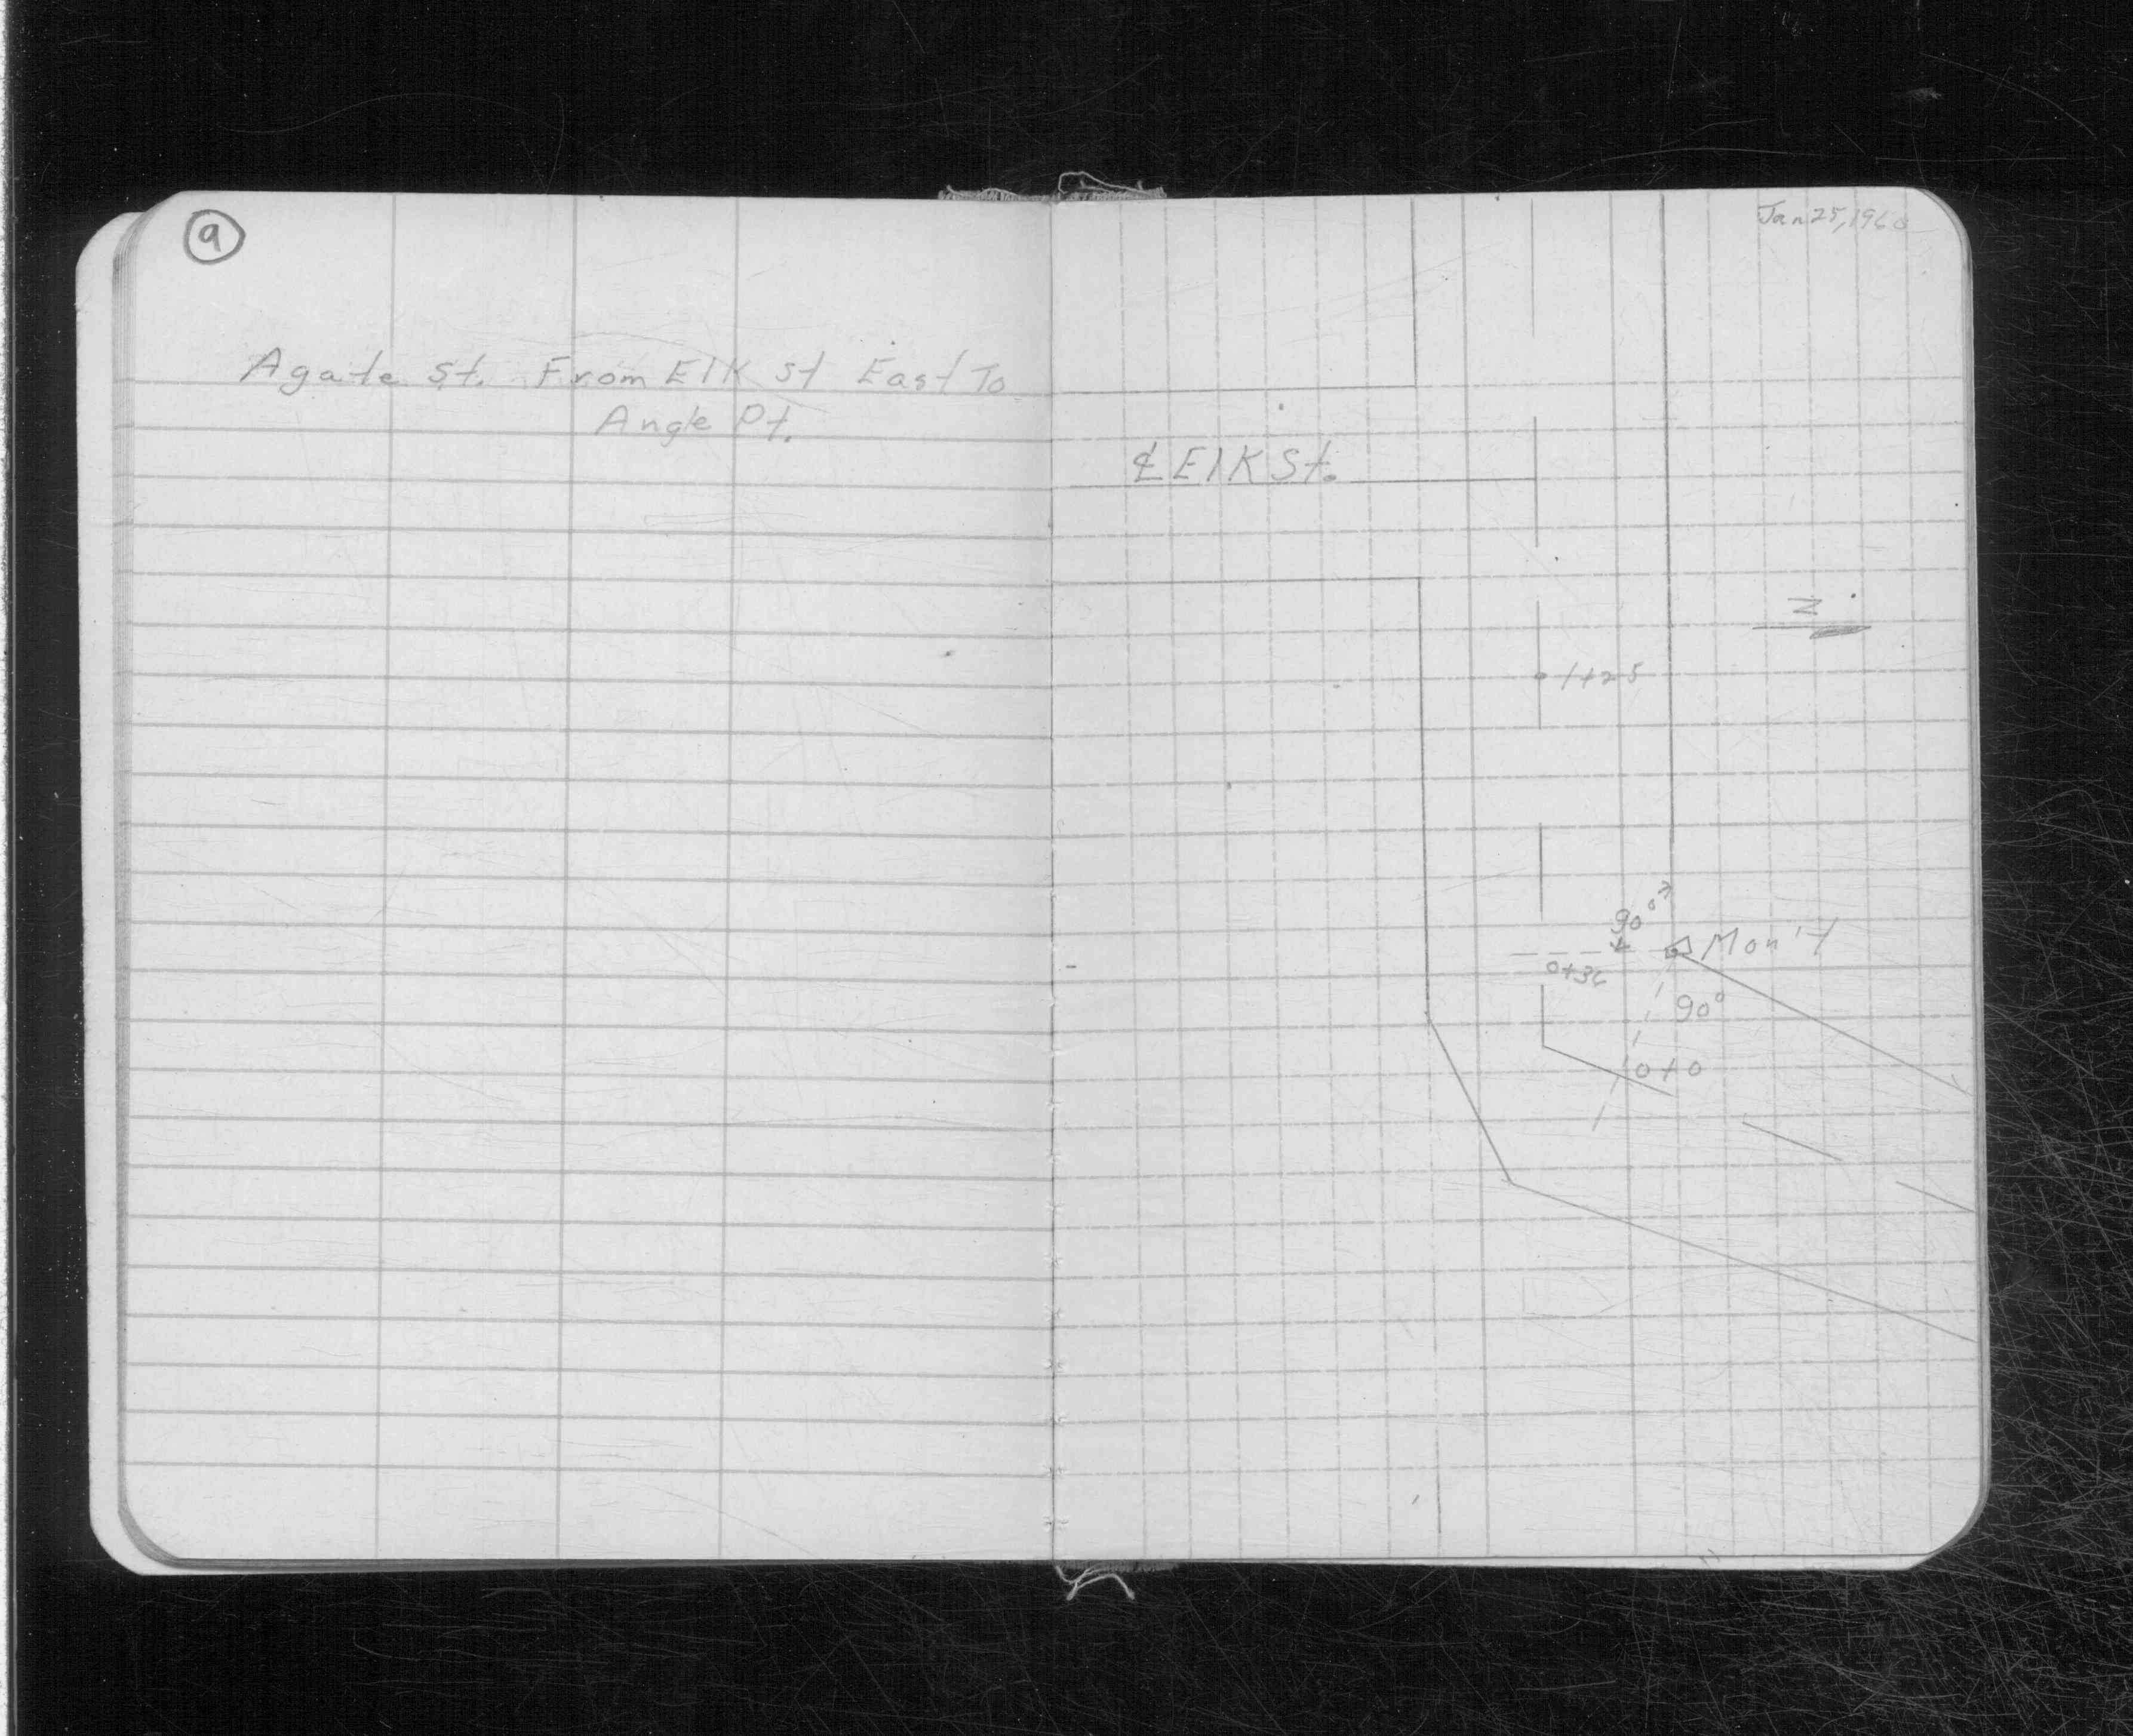 9
Agate St. From Elk St East To
Angle Pt.
Jan 25, 1960
℄ Elk St.
N
1+25
90°
Mon't
0+36
90°
0+0